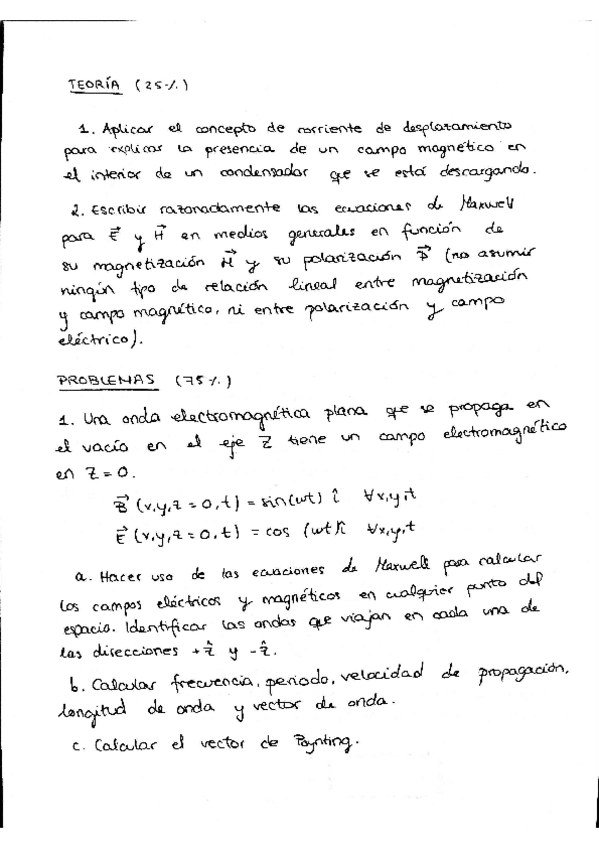 TEORÍA (25%)
1. Aplicar el concepto de corriente de desplazamiento
para explicar la presencia de un campo magnético en
el interior de un condensador que se está descargando.
2. Escribir razonadamente las ecuaciones de Maxwell
para E⃗ y H⃗ en medios generales en función de
su magnetización M⃗ y su polarización P⃗ (no asumir
ningún tipo de relación lineal entre magnetización
y campo magnético, ni entre polarización y campo
eléctrico).
PROBLEMAS (75%)
1. Una onda electromagnética plana que se propaga en
el vacío en el eje Z tiene un campo electromagnético
en Z = 0.
B⃗ (x,y,z = 0,t) = sin(ωt) î ∀x,y,t
E⃗ (x,y,z = 0,t) = cos (ωt) î ∀x,y,t
a. Hacer uso de las ecuaciones de Maxwell para calcular
los campos eléctricos y magnéticos en cualquier punto del
espacio. Identificar las ondas que viajan en cada una de
las direcciones +ẑ y -ẑ.
b. Calcular frecuencia, periodo, velocidad de propagación,
longitud de onda y vector de onda.
c. Calcular el vector de Poynting.